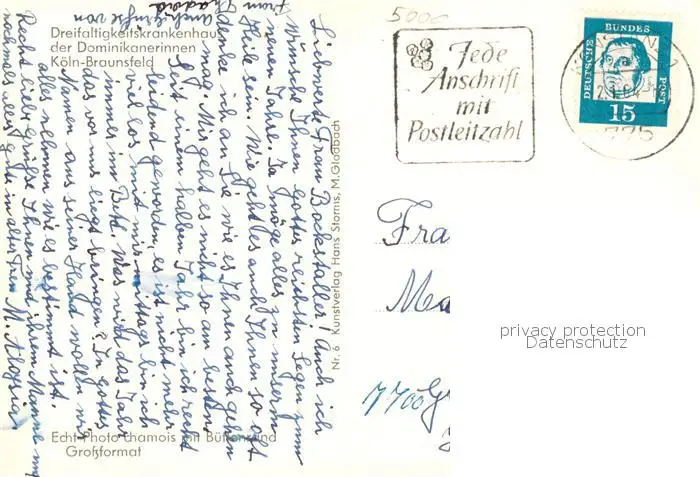 Dreifaltigkeitskrankenhaus
der Dominikanerinnen
Köln-Braunsfeld
Liebwerte Frau Bockstaller! Auch ich
wünsche Ihnen Gottes reichsten Segen zum
neuen Jahre. Ja möge alles zu unserm
Heile sein. Wie geht es auch Ihnen so oft
denke ich an Sie wie es Ihnen auch gehen
mag. Mir geht es nicht so am besten
Seit einem halben Jahr bin ich recht
leidend geworden, es ist nicht mehr
viel los mit mir mittags bin ich
immer im Bett. Was wird das Jahr
das vor uns liegt bringen? In Gottes
Namen aus seiner Hand wollen wir
alles nehmen wie es bestimmt ist.
Recht liebe Grüße Ihnen und ihrem Manne und
nochmals alles gute in alter Treu M. Aloysia
auch Grüße von
Echt Photo chamois mit Büttenrand
Großformat
Nr. 6 Kunstverlag Hans Stormis, M.Gladbach
5000
Jede
Anschrift
mit
Postleitzahl
DEUTSCHE
BUNDES
POST
15
775
Fra
Ma
7700
privacy protection
Datenschutz